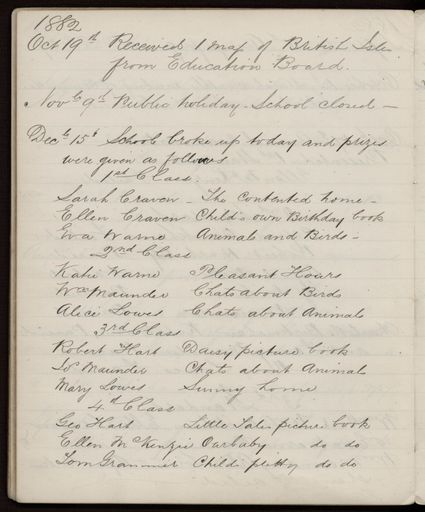 1882
Oct 19th Received 1 map of British Isles
from Education Board.
Novbr 9th Public holiday - School closed -
Decbr 15th School broke up today and prizes
were given as follows
1st Class.
Sarah Craven - The contented home -
Ellen Craven Child's own Birthday book
Eva Warne Animals and Birds -
2nd Class
Katie Warne Pleasant Hours
Wm Maunder Chats about Birds
Alice Lowes Chats about Animals
3rd Class
Robert Hart Daisy picture book
Maunder Chats about Animals
Mary Lowes Sunny home
4th Class
Geo Hart Little Tales picture book
Ellen McKenzie Our baby do do
Tom Grammer Child's pretty do do